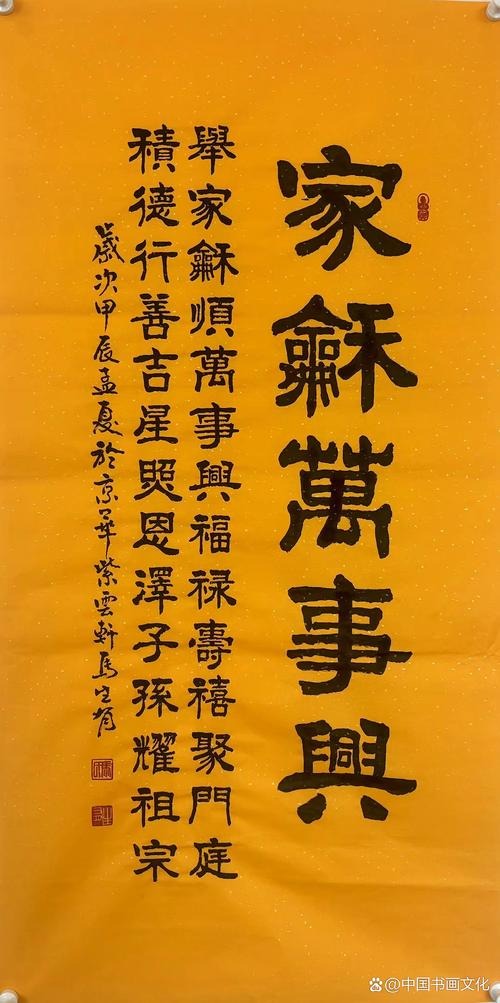 家龢萬事興
舉家龢順萬事興福禄壽禧聚門庭
積德行善吉星照恩澤子孫耀祖宗
歲次甲辰孟夏於京華紫雲軒馬生
@中国书画文化